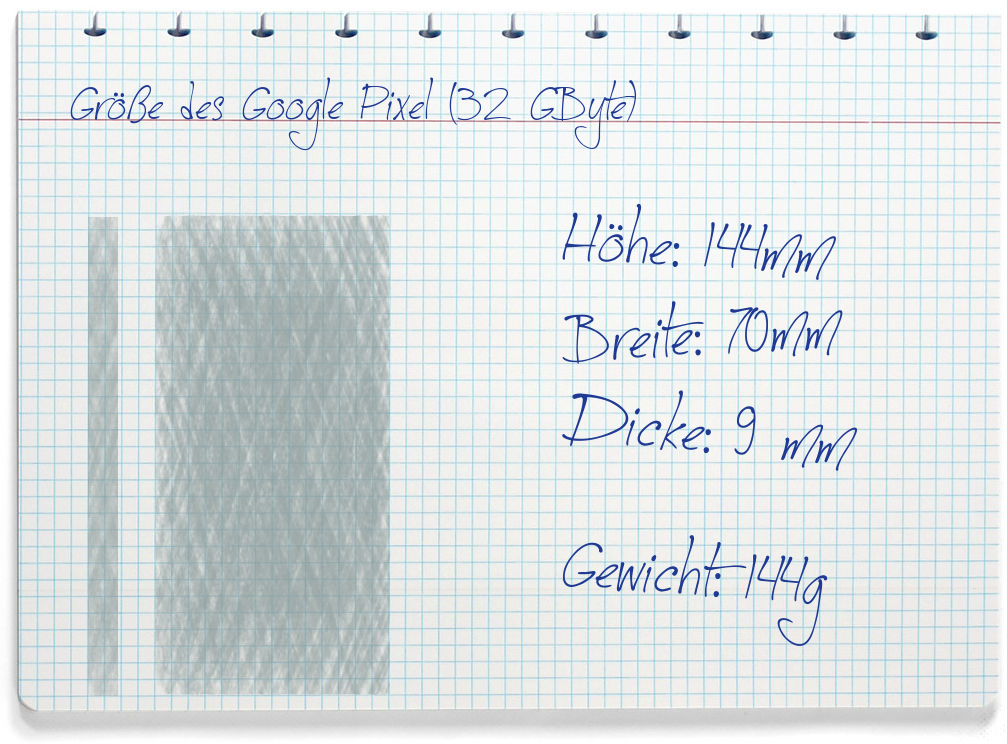 Größe des Google Pixel (32 GByte)
Höhe: 144mm
Breite: 70mm
Dicke: 9 mm
Gewicht: 144g